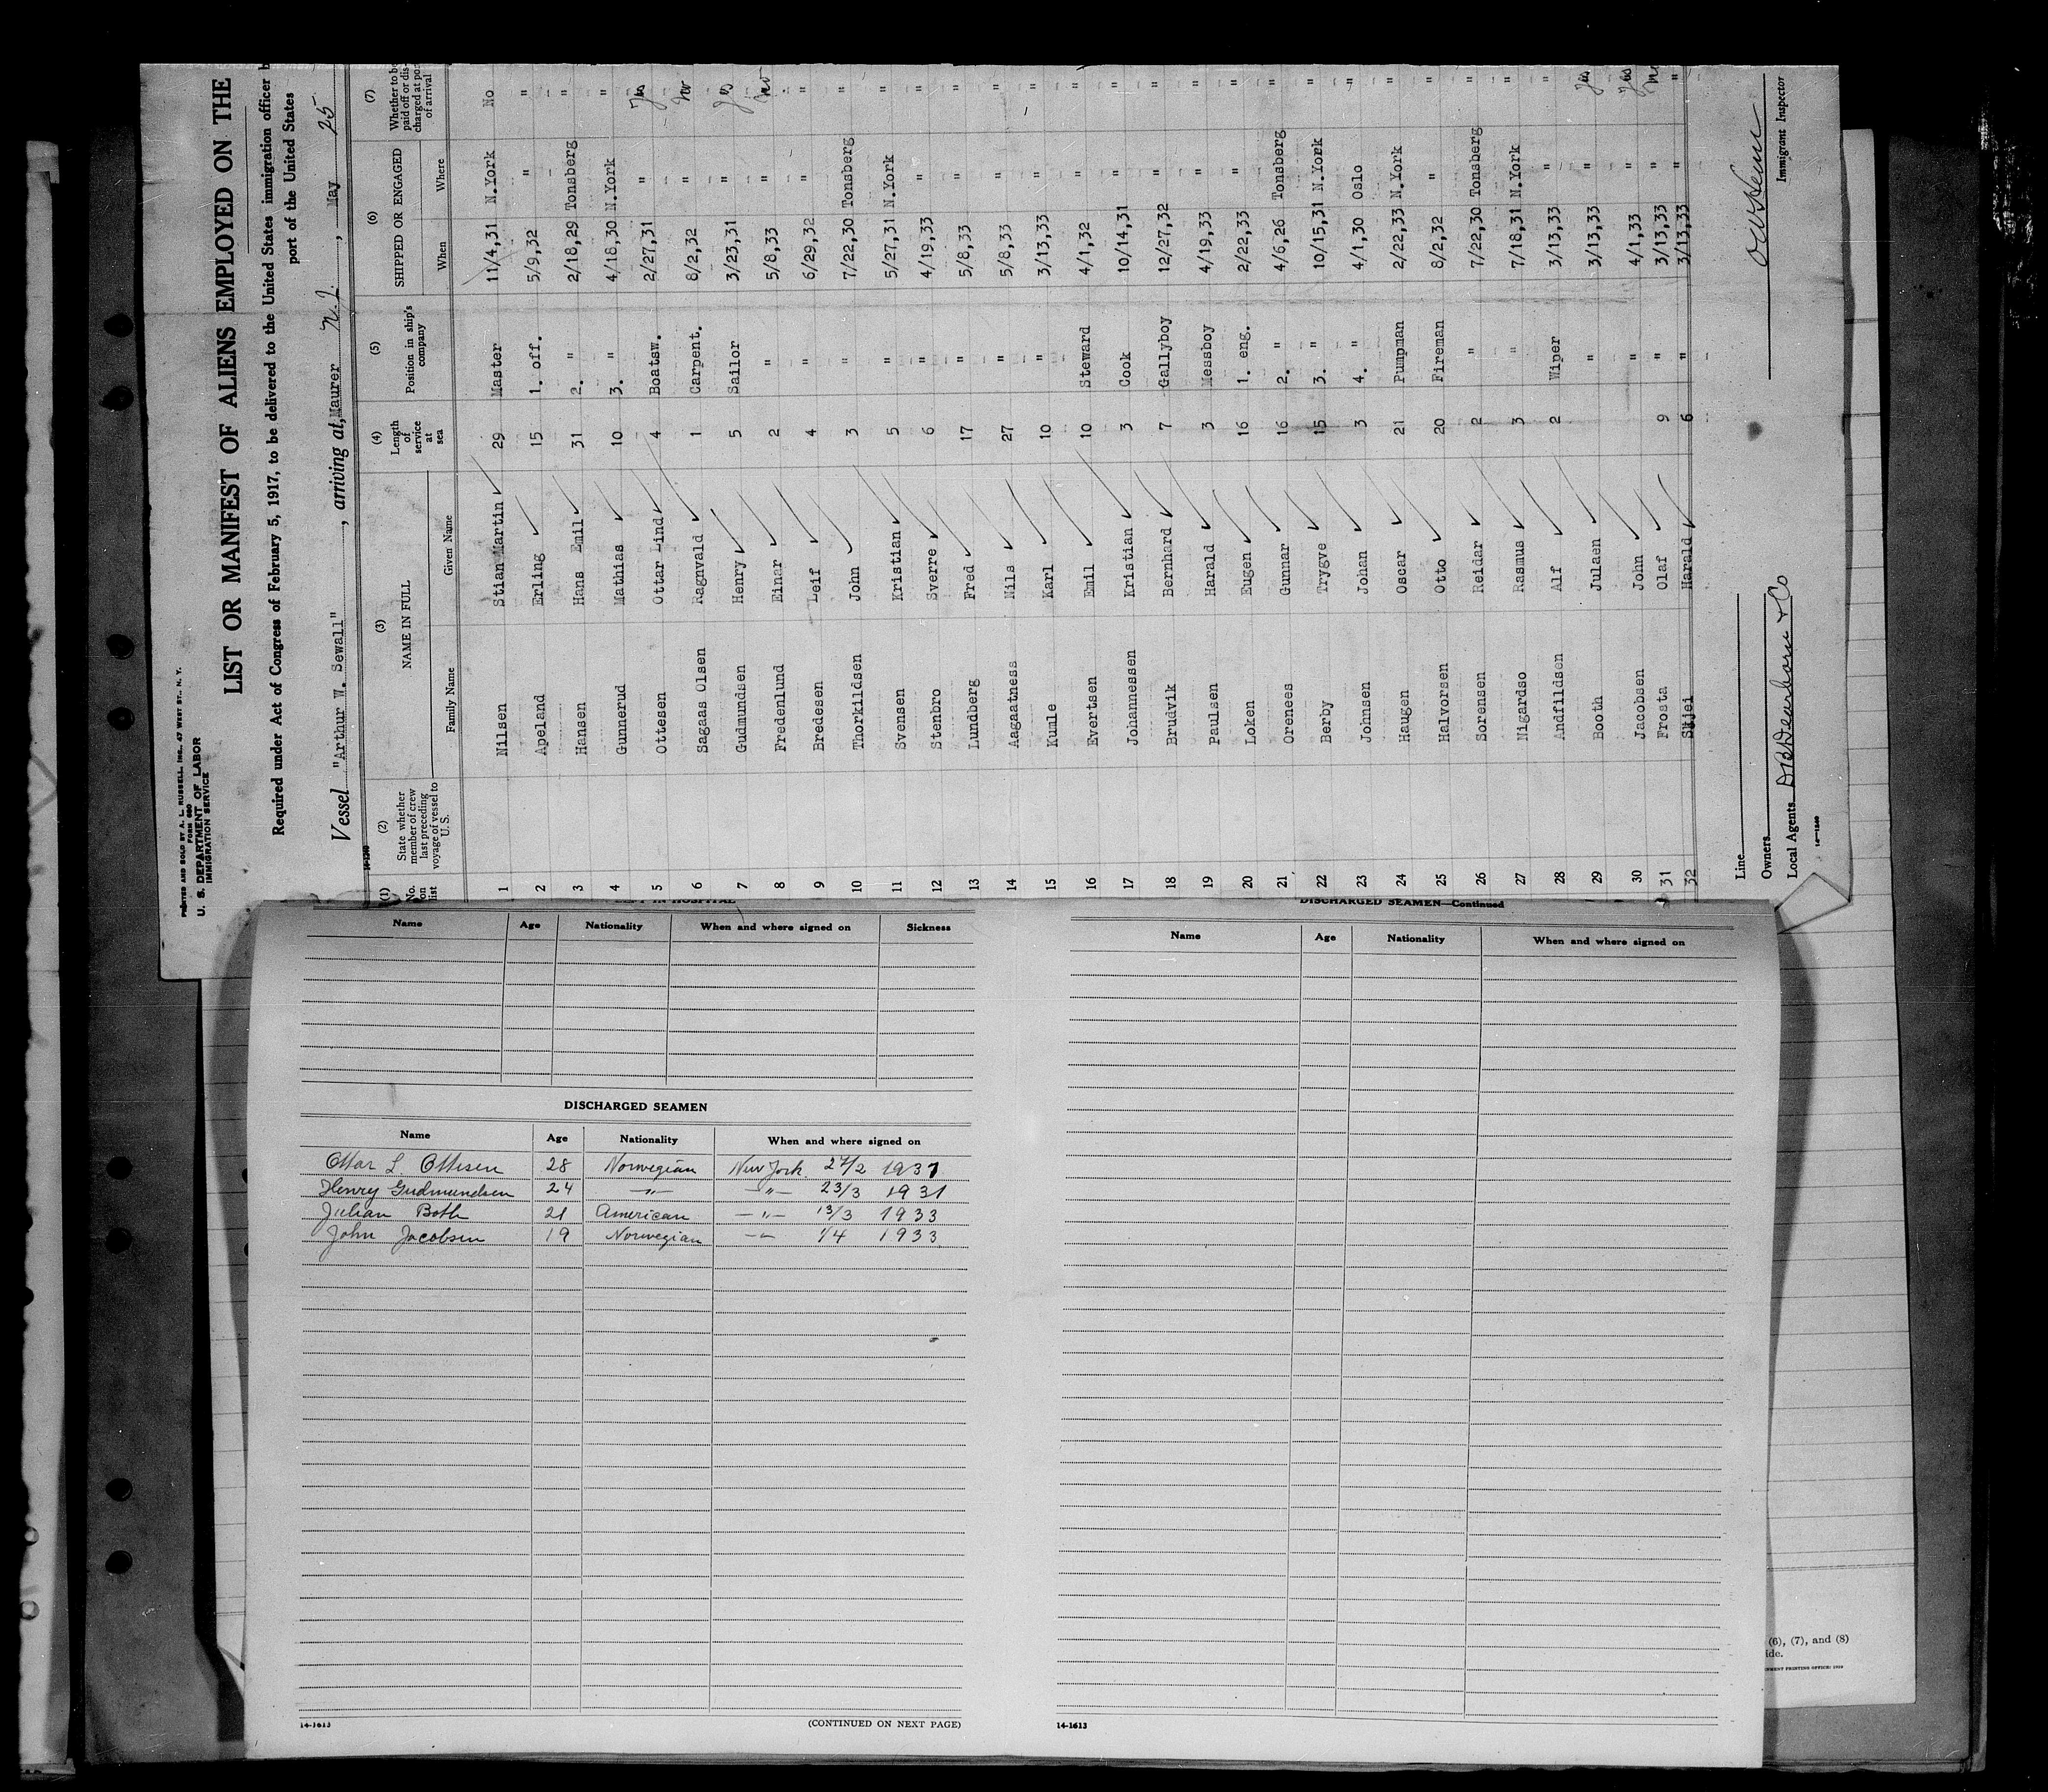 PRINTED AND SOLD BY A. L. RUSSELL, INC., 47 WEST ST., N. Y.
FORM 680
U. S. DEPARTMENT OF LABOR
IMMIGRATION SERVICE
LIST OR MANIFEST OF ALIENS EMPLOYED ON THE
Required under Act of Congress of February 5, 1917, to be delivered to the United States immigration officer
port of the United States
Vessel "Arthur W. Sewall", arriving at, Maurer N.J., May 25
(1) No. on list (2) State whether member of crew last preceding voyage of vessel to U. S. (3) NAME IN FULL Family Name Given Name (4) Length of service at sea (5) Position in ship's company (6) SHIPPED OR ENGAGED When Where (7) Whether to be paid off or discharged at port of arrival
1 Nilsen Stian Martin 29 Master 11/4,31 N.York No
2 Apeland Erling 15 1. off. 5/9,32 " "
3 Hansen Hans Emil 31 2. " 2/18,29 Tonsberg "
4 Gunnerud Mathias 10 3. " 4/18,30 N.York "
5 Ottesen Ottar Lind 4 Boatsw. 2/27,31 " Yes
6 Sagaas Olsen Ragnvald 1 Carpent. 8/2,32 " " No
7 Gudmundsen Henry 5 Sailor 3/23,31 " Yes
8 Fredenlund Einar 2 " 5/8,33 " " No
9 Bredesen Leif 4 " 6/29,32 " "
10 Thorkildsen John 3 " 7/22,30 Tonsberg "
11 Svensen Kristian 5 " 5/27,31 N.York "
12 Stenbro Sverre 6 " 4/19,33 " "
13 Lundberg Fred 17 " 5/8,33 " "
14 Aagaatness Nils 27 " 5/8,33 " "
15 Kumle Karl 10 " 3/13,33 " "
16 Evertsen Emil 10 Steward 4/1,32 " "
17 Johannessen Kristian 3 Cook 10/14,31 " "
18 Brudvik Bernhard 7 Gallyboy 12/27,32 " "
19 Paulsen Harald 3 Messboy 4/19,33 " "
20 Loken Eugen 16 1. eng. 2/22,33 " "
21 Orenees Gunnar 16 2. " 4/6,26 Tonsberg "
22 Berby Trygve 15 3. " 10/15,31 N.York "
23 Johnsen Johan 3 4. " 4/1,30 Oslo "
24 Haugen Oscar 21 Pumpman 2/22,33 N.York "
25 Halvorsen Otto 20 Fireman 8/2,32 " "
26 Sorensen Reidar 2 " 7/22,30 Tonsberg "
27 Nigardso Rasmus 3 " 7/18,31 N.York "
28 Andfildsen Alf 2 Wiper 3/13,33 " "
29 Booth Julaen " 3/13,33 " Yes
30 Jacobsen John " 4/1,33 " Yes
31 Frosta Olaf 9 " 3/13,33 " " No
32 Skjei Harald 6 " 3/13,33 " "
Line
Owners
Local Agents D B Dearborn & Co
Immigrant Inspector
14-1240
LEFT IN HOSPITAL
Name Age Nationality When and where signed on Sickness
DISCHARGED SEAMEN
Name Age Nationality When and where signed on
Ottar L. Ottesen 28 Norwegian New York 27/2 1931
Henry Gudmundsen 24 —"— —"— 23/3 1931
Julian Both 21 American —"— 13/3 1933
John Jacobsen 19 Norwegian —"— 1/4 1933
14-1613 (CONTINUED ON NEXT PAGE)
DISCHARGED SEAMEN—Continued
Name Age Nationality When and where signed on
14-1613
(6), (7), and (8)
ide.
NMENT PRINTING OFFICE: